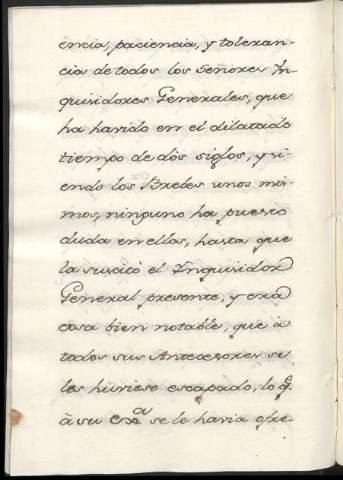 encia, paciencia, y toleran-
cia de todos los Señores In-
quisidores Generales, que
ha havido en el dilatado
tiempo de dos siglos, y si
endo los Brebes unos mis-
mos, ninguno ha puesto
duda en ellos, hasta que
la suscitó el Inquisidor
General presente, y era
cosa bien notable, que à
todos sus Antecesores se
les huviese escapado, lo q.
à su Exa. se le havia ofre-